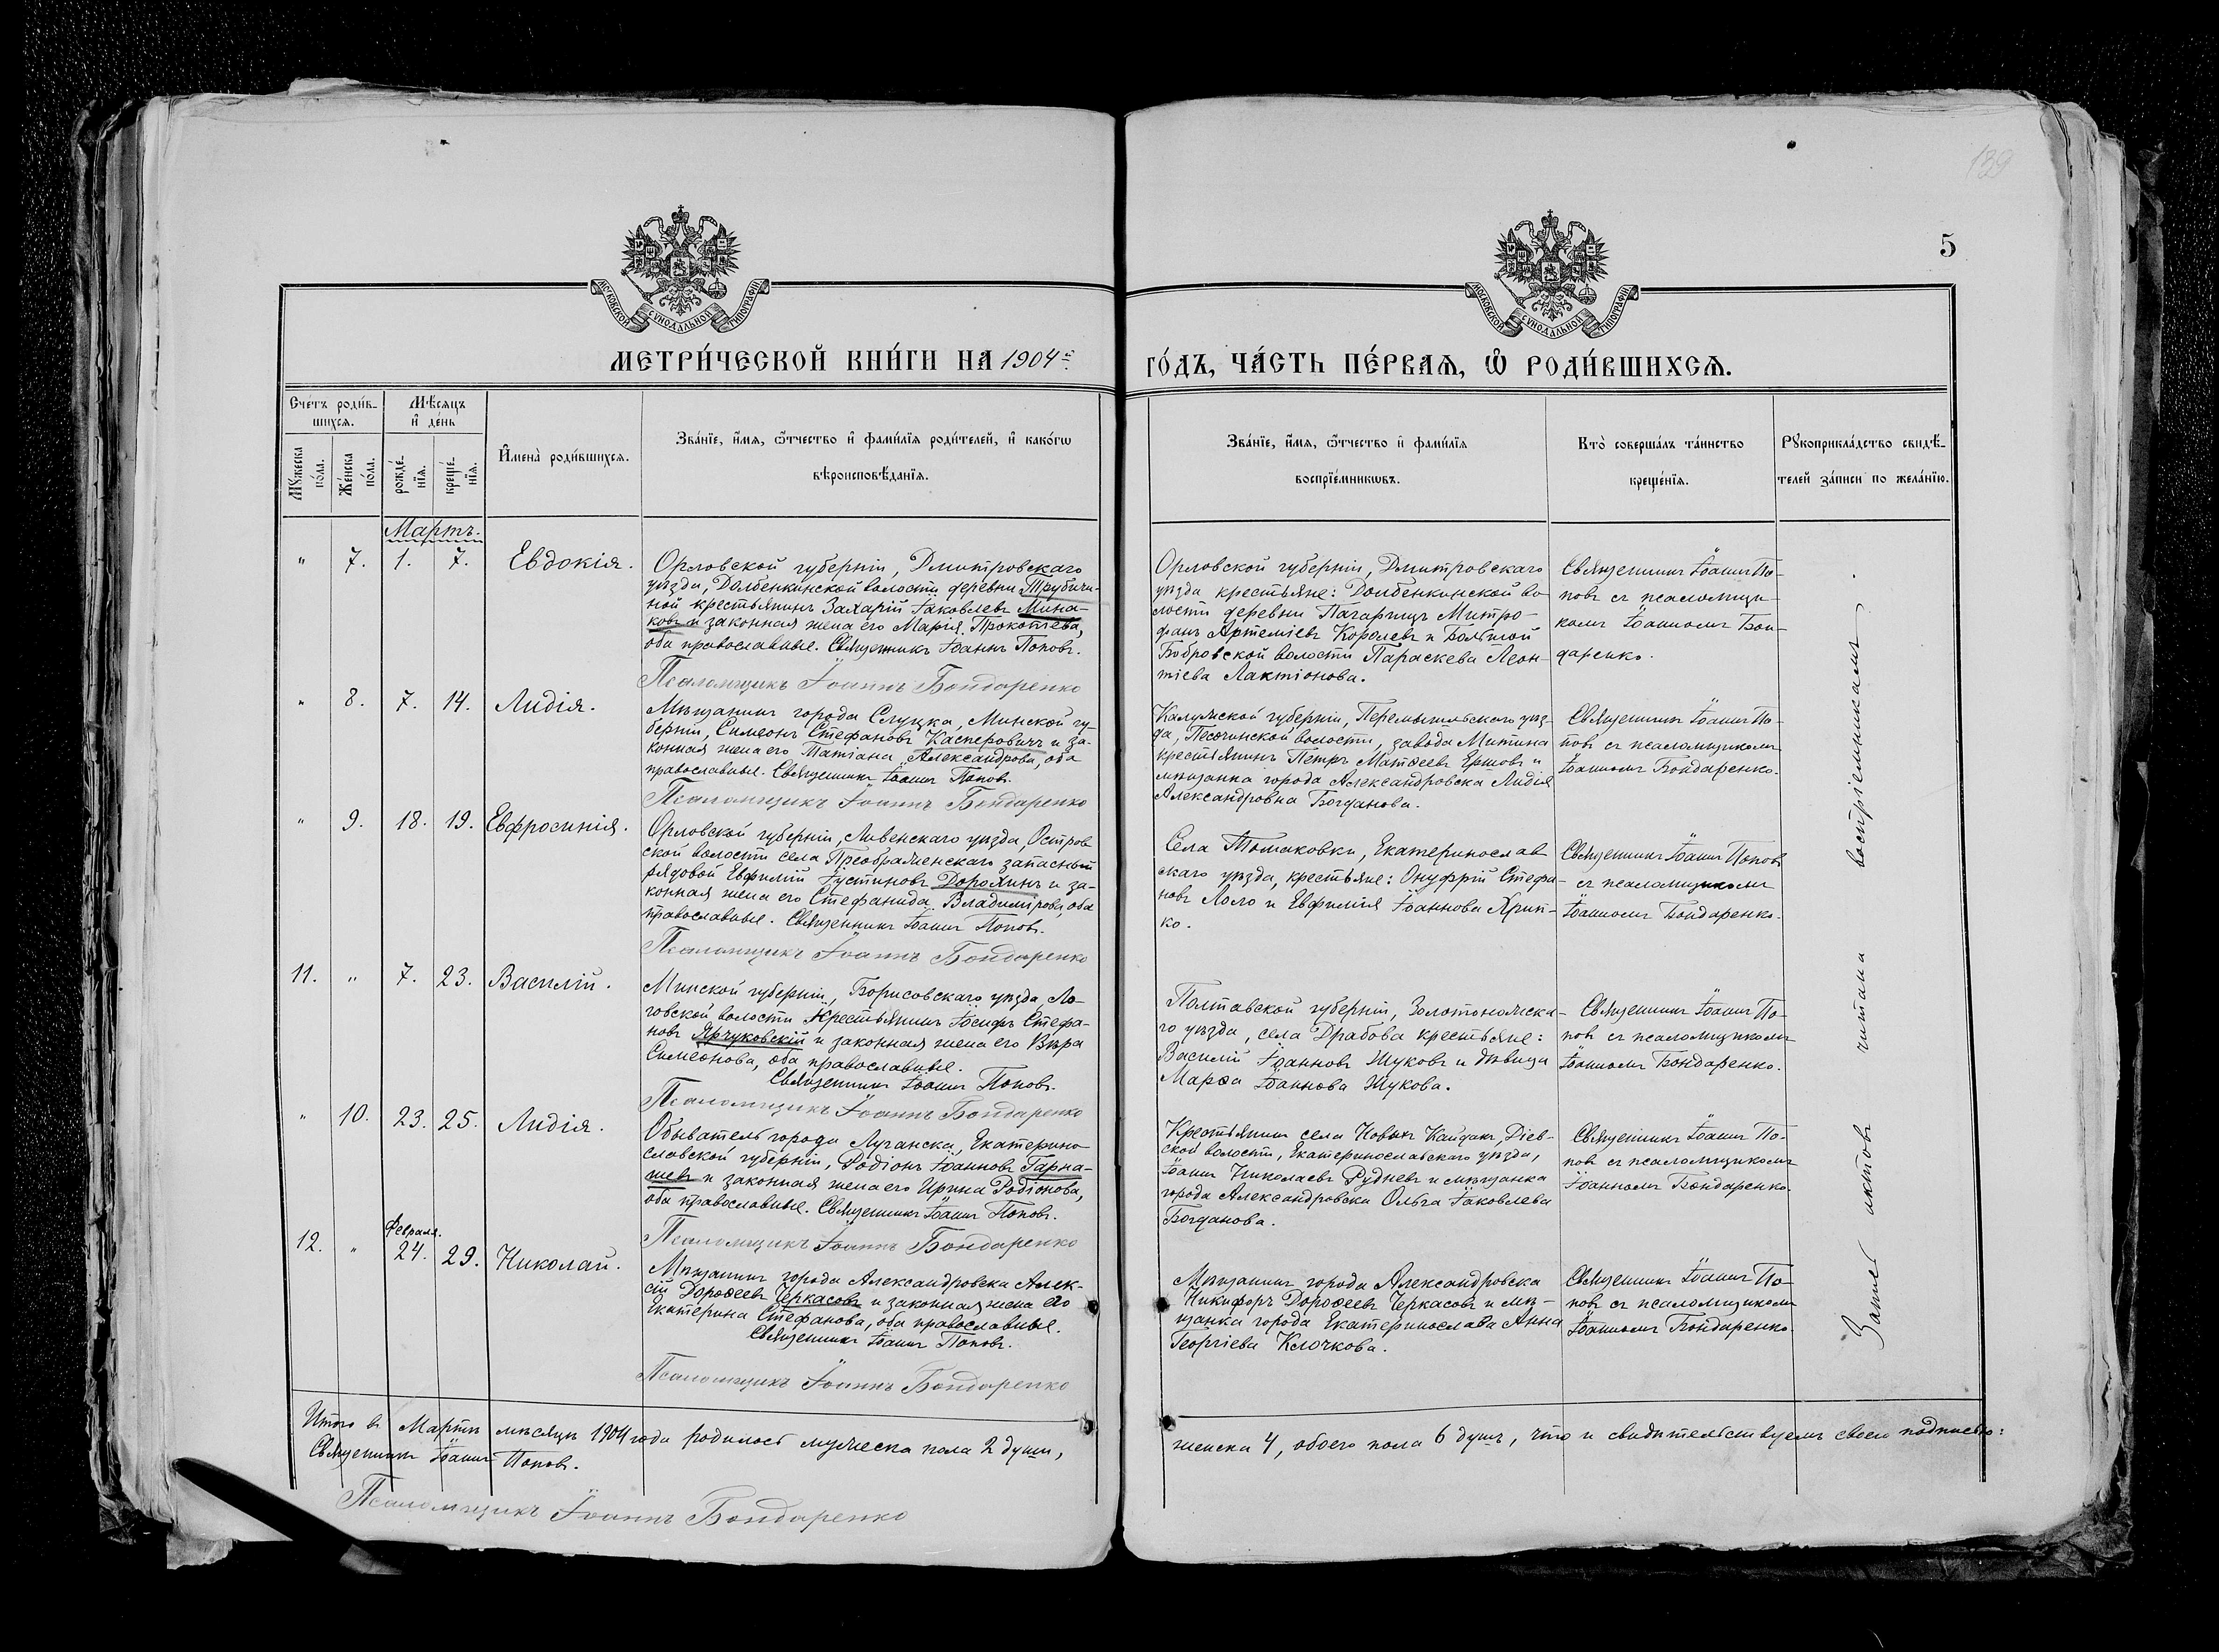 139
5
МОСКОВСКОЙ СУНОДАЛЬНОЙ ТИПОГРАФІИ
МОСКОВСКОЙ СУНОДАЛЬНОЙ ТИПОГРАФІИ
МЕТРИ́ЧЕСКОЙ КНИ́ГИ НА 1904й
ГО́ДЪ, ЧА́СТЬ ПЕ́РВАѦ, Ѽ РОДИ́ВШИХСѦ.
Сче́тъ роди́в-
шихсѧ.
Мѣ́сѧцъ
и҆ де́нь
Мꙋ́жеска
по́ла.
Же́нска
по́ла.
рожде́-
нїѧ.
креще́-
нїѧ.
И҆мена̀ роди́вшихсѧ.
Зва́нїе, и҆́мѧ, ѻ҆́тчество и҆ фами́лїѧ роди́телей, и҆ како́гѡ
вѣроисповѣ́данїѧ.
Зва́нїе, и҆́мѧ, ѻ҆́тчество и҆ фами́лїѧ
воспрїе́мникѡвъ.
Кто̀ соверша́лъ та́инство
креще́нїѧ.
Рꙋкоприкла́дство свидѣ́-
телей за́писи по жела́нїю.
Мартъ.
" 7. 1. 7. Евдокія.
Орловской губерніи, Дмитровскаго
уѣзда, Долбенкинской волости деревни Трубичи-
ной крестьянинъ Захарій Іаковлевъ Мина-
ковъ и законная жена его Марія Прокопіева,
оба православные. Священникъ Іоаннъ Поповъ.
Псаломщикъ Іоаннъ Бондаренко
Орловской губерніи, Дмитровскаго
уѣзда крестьяне: Долбенкинской во
лости деревни Пагарищъ Митро-
фанъ Артеміевъ Королевъ и Большой
Бобровской волости Параскева Леон-
тіева Лактіонова.
Священникъ Іоаннъ По-
повъ съ псаломщи-
комъ Іоанномъ Бон-
даренко.
" 8. 7. 14. Лидія.
Мѣщанинъ города Слуцка, Минской гу-
берніи, Симеонъ Стефановъ Касперовичъ и за-
конная жена его Татіана Александрова, оба
православные. Священникъ Іоаннъ Поповъ.
Псаломщикъ Іоаннъ Бондаренко
Калужской губерніи, Перемышльскаго уѣз-
да, Песочинской волости, завода Митина
крестьянинъ Петръ Матѳеевъ Ершовъ и
мѣщанка города Александровска Лидія
Александровна Богданова.
Священникъ Іоаннъ По-
повъ съ псаломщикомъ
Іоанномъ Бондаренко.
" 9. 18. 19. Евфросинія.
Орловской губерніи, Ливенскаго уѣзда, Остров
ской волости села Преображенскаго запасный
рядовой Евфимій Іустиновъ Дорохинъ и за-
конная жена его Стефанида Владимірова, оба
православные. Священникъ Іоаннъ Поповъ.
Псаломщикъ Іоаннъ Бондаренко
Села Томаковки, Екатеринослав
скаго уѣзда, крестьяне: Онуфрій Стефа-
новъ Лоло и Евфимія Іоаннова Хрип-
ко.
Священникъ Іоаннъ Поповъ
съ псаломщикомъ
Іоанномъ Бондаренко.
11. " 7. 23. Василій.
Минской губерніи, Борисовскаго уѣзда, Ло-
говской волости крестьянинъ Іосифъ Стефа-
новъ Ярчуковскій и законная жена его Вѣра
Симеонова, оба православные.
Священникъ Іоаннъ Поповъ.
Псаломщикъ Іоаннъ Бондаренко
Полтавской губерніи, Золотоношска-
го уѣзда, села Драбова крестьяне:
Василій Іоанновъ Жуковъ и дѣвица
Марѳа Іоаннова Жукова.
Священникъ Іоаннъ По-
повъ съ псаломщикомъ
Іоанномъ Бондаренко.
" 10. 23. 25. Лидія.
Обыватель города Луганска, Екатерино
славской губерніи, Родіонъ Іоанновъ Гарна-
шевъ и законная жена его Ирина Родіонова,
оба православные. Священникъ Іоаннъ Поповъ.
Псаломщикъ Іоаннъ Бондаренко
Крестьянинъ села Новыхъ Кайдакъ, Діев-
ской волости, Екатеринославскаго уѣзда,
Іоаннъ Николаевъ Рудневъ и мѣщанка
города Александровска Ольга Іаковлева
Богданова.
Священникъ Іоаннъ По-
повъ съ псаломщикомъ
Іоанномъ Бондаренко.
Февраля.
12. " 24. 29. Николай.
Мѣщанинъ города Александровска Алек-
сій Дороѳеевъ Черкасовъ и законная жена его
Екатерина Стефанова, оба православные.
Священникъ Іоаннъ Поповъ.
Псаломщикъ Іоаннъ Бондаренко
Мѣщанинъ города Александровска
Никифоръ Дороѳеевъ Черкасовъ и мѣ-
щанка города Екатеринослава Анна
Георгіева Клочкова.
Священникъ Іоаннъ По-
повъ съ псаломщикомъ
Іоанномъ Бондаренко.
Запись актовъ читана воспріемникамъ.
Итого въ Мартѣ мѣсяцѣ 1904 года родилось мужеска пола 2 души,
женска 4, обоего пола 6 душъ, что и свидѣтельствуемъ своею подписью:
Священникъ Іоаннъ Поповъ.
Псаломщикъ Іоаннъ Бондаренко